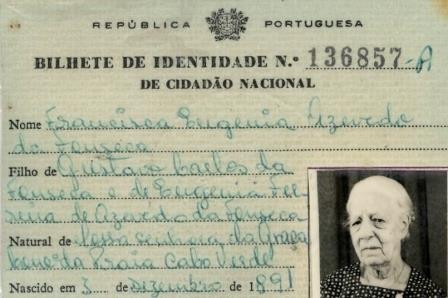 REPÚBLICA PORTUGUESA
BILHETE DE IDENTIDADE N.º 136857-A
DE CIDADÃO NACIONAL
Nome Francisca Eugenia Azevedo
da Fonseca
Filho de Gustavo Carlos da
Fonseca e de Eugenia Feli
de Azevedo da Fonseca
Natural de Nossa Senhora da Graça
Praia Cabo Verde
Nascido em 3 de Dezembro de 1891